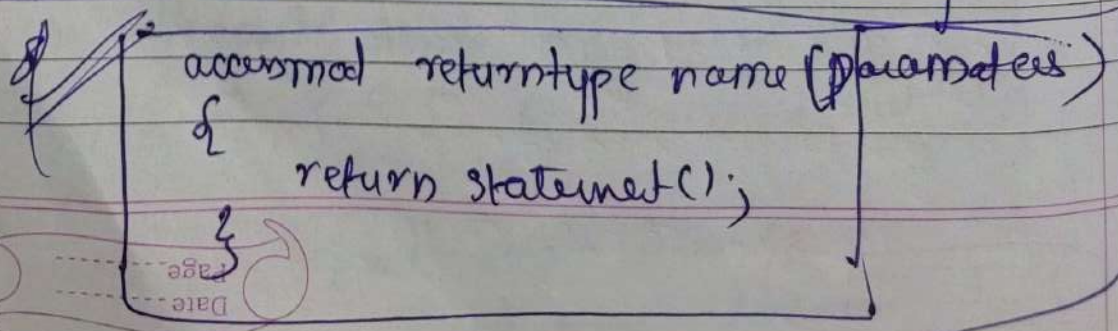 accessmod returntype name (parameters)
{
return statemet();
}
Page
Date